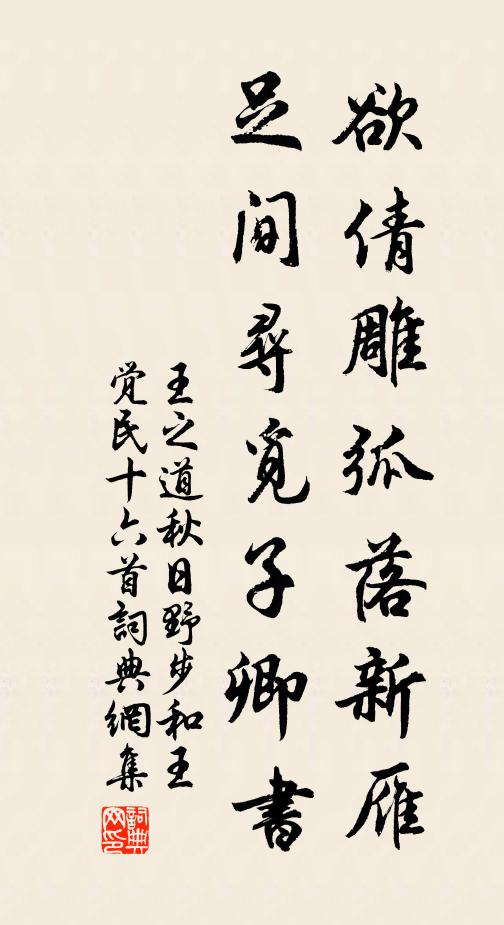 欲倩雕弧落新雁
足间寻觅子卿書
王之道秋日野步和王
觉民十六首詞典網集
詞典網印